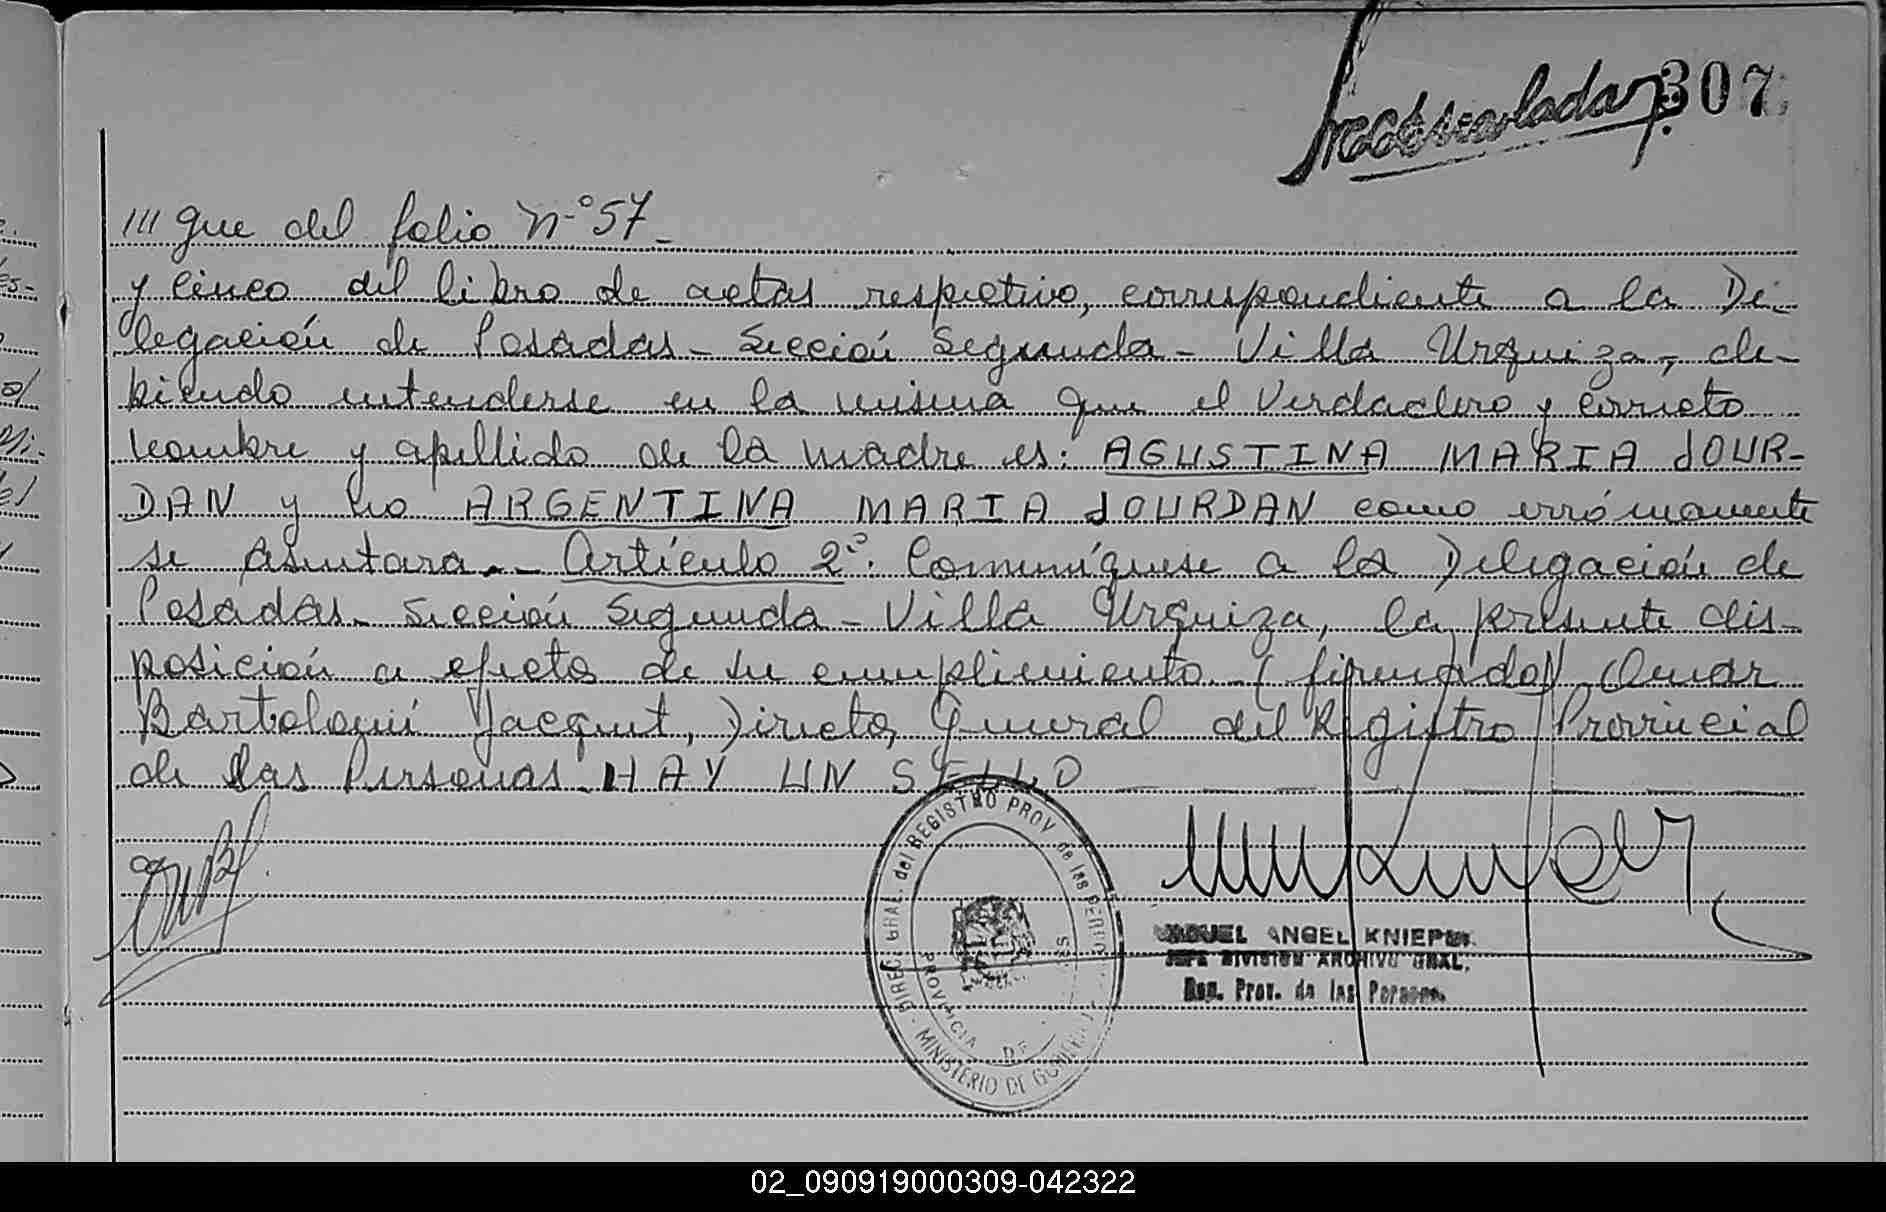 307
/// que del folio N-º 57 -
y cinco del libro de actas respetivo, correspondiente a la De-
legación de Posadas - Sección Segunda - Villa Urquiza, de-
biendo entenderse en la misma que el verdadero y correto
nombre y apellido de la madre es: AGUSTINA MARIA JOUR-
DAN y no ARGENTINA MARIA JOURDAN como errómamente
se asentara. - Artículo 2º: Comuníquese a la Delegación de
Posadas - Sección Segunda - Villa Urquiza, la presente dis-
posición a efeto de su cumplimiento. (firmado) Omar
Jacquet, Director General del Registro Provincial
de las Personas. HAY UN SELLO
DIREC. GRAL. del REGISTRO PROV. de las
PROVINCIA DE
MINISTERIO DE
MIGUEL ANGEL
JEFE DIVISION ARCHIVO GRAL.
Reg. Prov. de las Personas
02_090919000309-042322